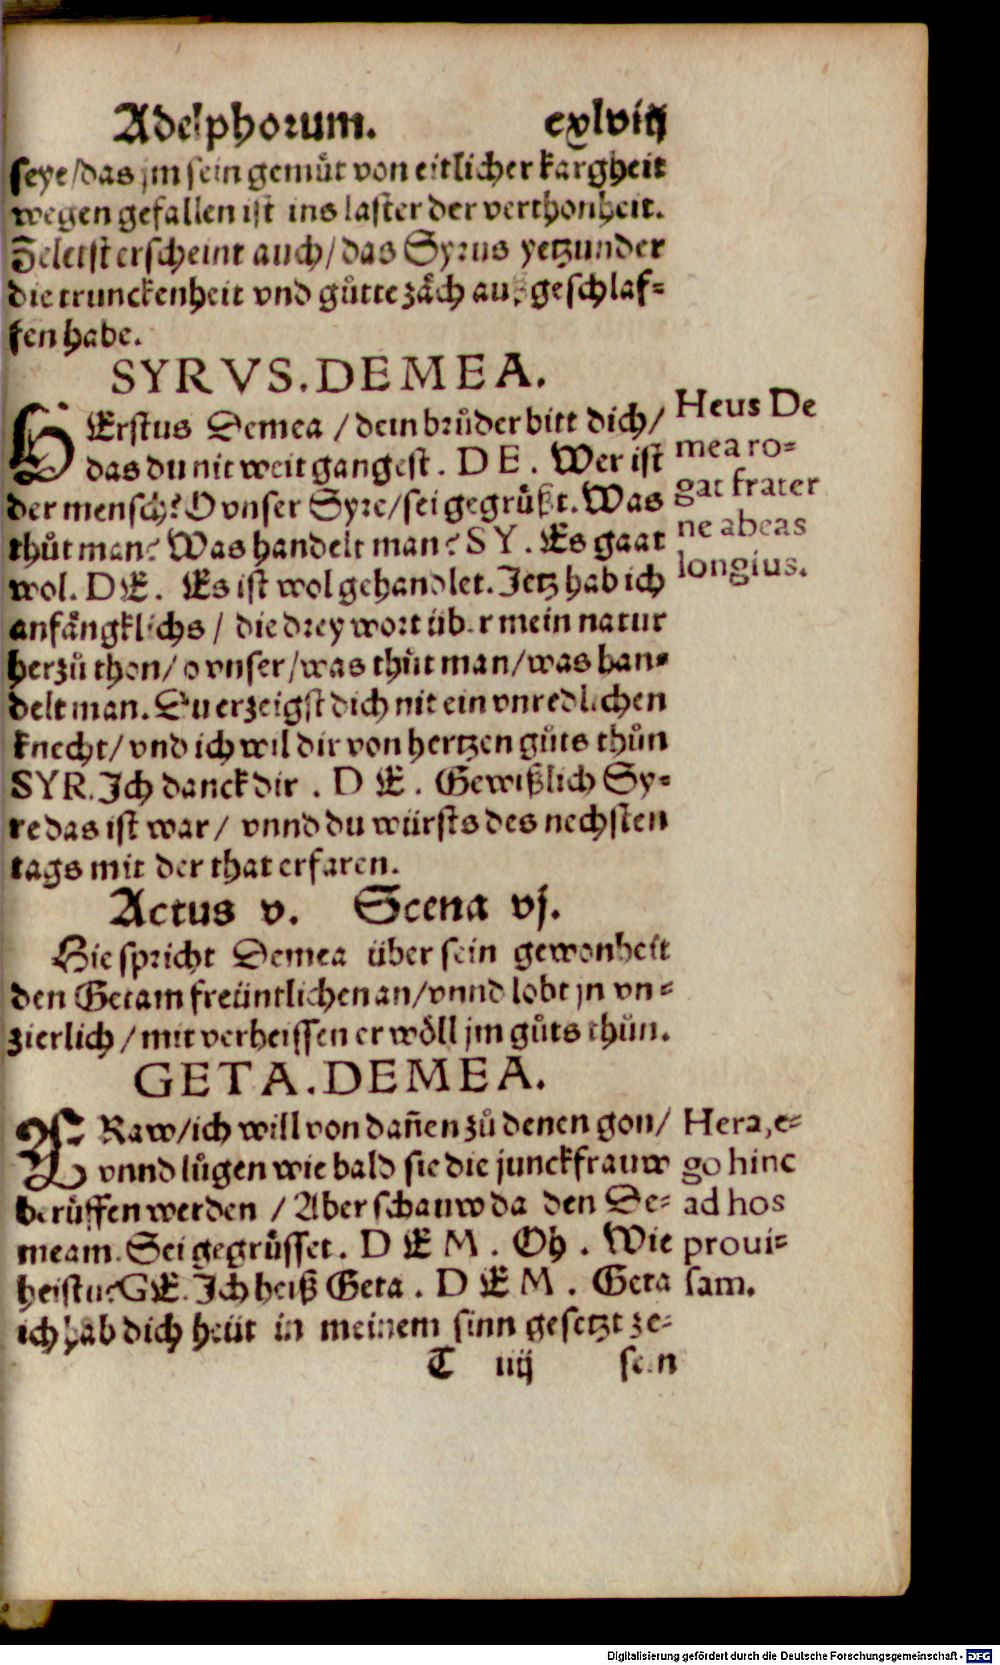 Adelphorum. cxlviij
seye/das jm sein gemuͤt von eitlicher kargheit
wegen gefallen ist ins laster der verthonheit.
Zeletst erscheint auch/das Syrus yetzunder
die trunckenheit vnd guͤtte zaͤch außgeschlaf-
fen habe.
SYRVS. DEMEA.
HErstus Demea /dein bruͦder bitt dich/
das du nit weit gangest. DE. Wer ist
der mensch? O vnser Syre/sei gegruͤßt. Was
thuͦt man? Was handelt man? SY. Es gaat
wol. DE. Es ist wol gehandlet. Jetz hab ich
anfaͤngklichs / die drey wort über mein natur
herzuͦ thon/ o vnser/was thuͦt man/was han-
delt man. Du erzeigst dich nit ein vnredlichen
knecht/ vnd ich wil dir von hertzen guͦts thuͦn
SYR. Ich danck dir . DE. Gewißlich Sy-
re das ist war/ vnnd du würsts des nechsten
tags mit der that erfaren.
Heus De
mea ro-
gat frater
ne abeas
longius.
Actus v. Scena vj.
Hie spricht Demea über sein gewonheit
den Getam freüntlichen an/vnnd lobt jn vn-
zierlich /mit verheissen er woͤll jm guͦts thuͦn.
GETA. DEMEA.
Raw/ich will von dañen zuͦ denen gon/
vnnd luͦgen wie bald sie die junckfrauw
beruͤffen werden /Aber schauw da den De-
meam. Sei gegruͤsset. DEM. Oh. Wie
heistu? GE. Ich heiß Geta. DEM. Geta
ich hab dich heüt in meinem sinn gesetzt ze-
Hera, e-
go hinc
ad hos
proui-
sam.
T iiij sein
Digitalisierung gefördert durch die Deutsche Forschungsgemeinschaft - DFG